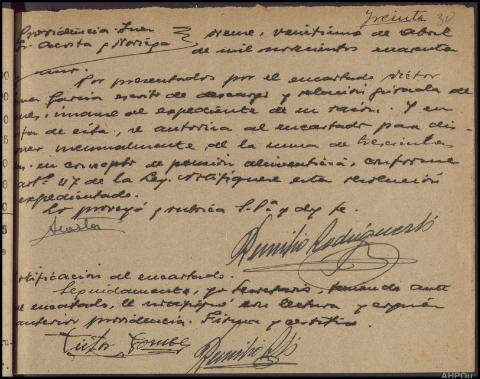 Treinta 30
Providencia Juez
Sr. Acosta y Noriega
veintiuno de abril
de mil novecientos cuarenta
y uno.
Por presentados por el encartado Víctor
García escrito de descargo y relación jurada de
únase al expediente de su razón. Y en
de esta, se autoriza al encartado para dis
mensualmente de la suma de trescientas
en concepto de pensión alimenticia, conforme
artº 47 de la Ley. Notifíquese esta resolución
expedientado.
Lo proveyó y rubrica S.Sª y doy fe.
Acosta
Remilio Rodríguez
tificación al encartado.
Seguidamente, yo Secretario, teniendo ante
al encartado, le notifiqué con lectura y copia
anterior providencia. Firma y certifico.
Víctor
AHPOu